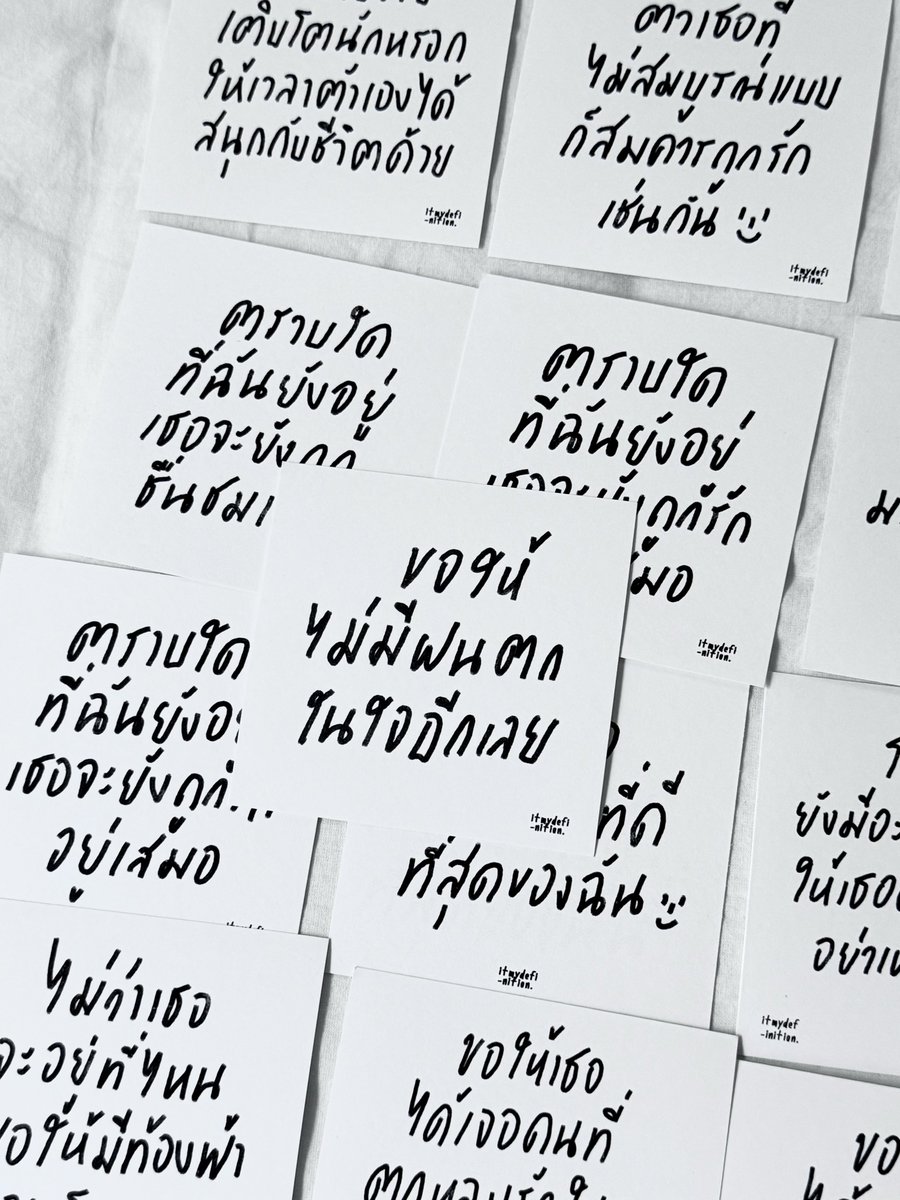 เติบโตนักหรอก
ให้เวลาตัวเองได้
สนุกกับชีวิตด้วย
itmydefi
-nition.
ตัวเธอที่
ไม่สมบูรณ์แบบ
ก็สมควรถูกรัก
เช่นกัน
itmydefi
-nition.
ตราบใด
ที่ฉันยังอยู่
เธอจะยังถูก
ชื่นชม
ตราบใด
ที่ฉันยังอยู่
เธอจะยังถูกรัก
เสมอ
itmydefi
-nition.
ขอให้
ไม่มีฝนตก
ในใจอีกเลย
itmydefi
-nition.
ตราบใด
ที่ฉันยัง
เธอจะยังถูก
อยู่เสมอ
ที่ดี
ที่สุดของฉัน
itmydefi
-nition.
ยังมี
ให้เธอ
itmydef
-inition.
ไม่ว่าเธอ
จะอยู่ที่ไหน
ขอให้มีท้องฟ้า
ขอให้เธอ
ได้เจอคนที่